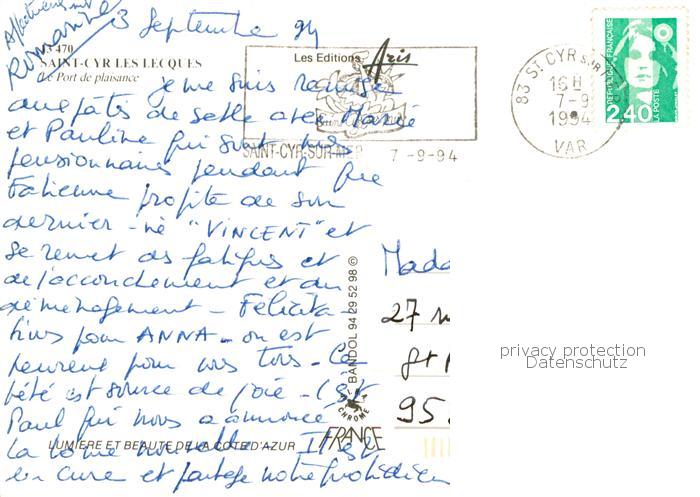 3 Septembre 94
Affectueusement
Romanche
83-470
SAINT-CYR LES LECQUES
Le Port de plaisance
Les Editions Aris
83 ST CYR SUR MER
16 H
7-9
1994
VAR
REPUBLIQUE FRANÇAISE
LA POSTE
2,40
SAINT-CYR-SUR-MER 7-9-94
Je me suis remise
aux pâtés de sable avec Marie
et Pauline qui sont mes
pensionnaires pendant que
Fabienne profite de son
dernier-né "VINCENT" et
se remet des fatigues et
de l'accouchement et du
déménagement - Félicita-
tions pour ANNA - on est
heureux pour vous tous - Ce
bébé est source de joie - C'est
Paul qui nous a annoncé
la bonne nouvelle - Il est
en cure et partage notre quotidien
LUMIERE ET BEAUTE DE LA COTE D'AZUR
BANDOL 94 29 52 98 ©
CHROME
FRANCE
Mada
27
95
privacy protection
Datenschutz